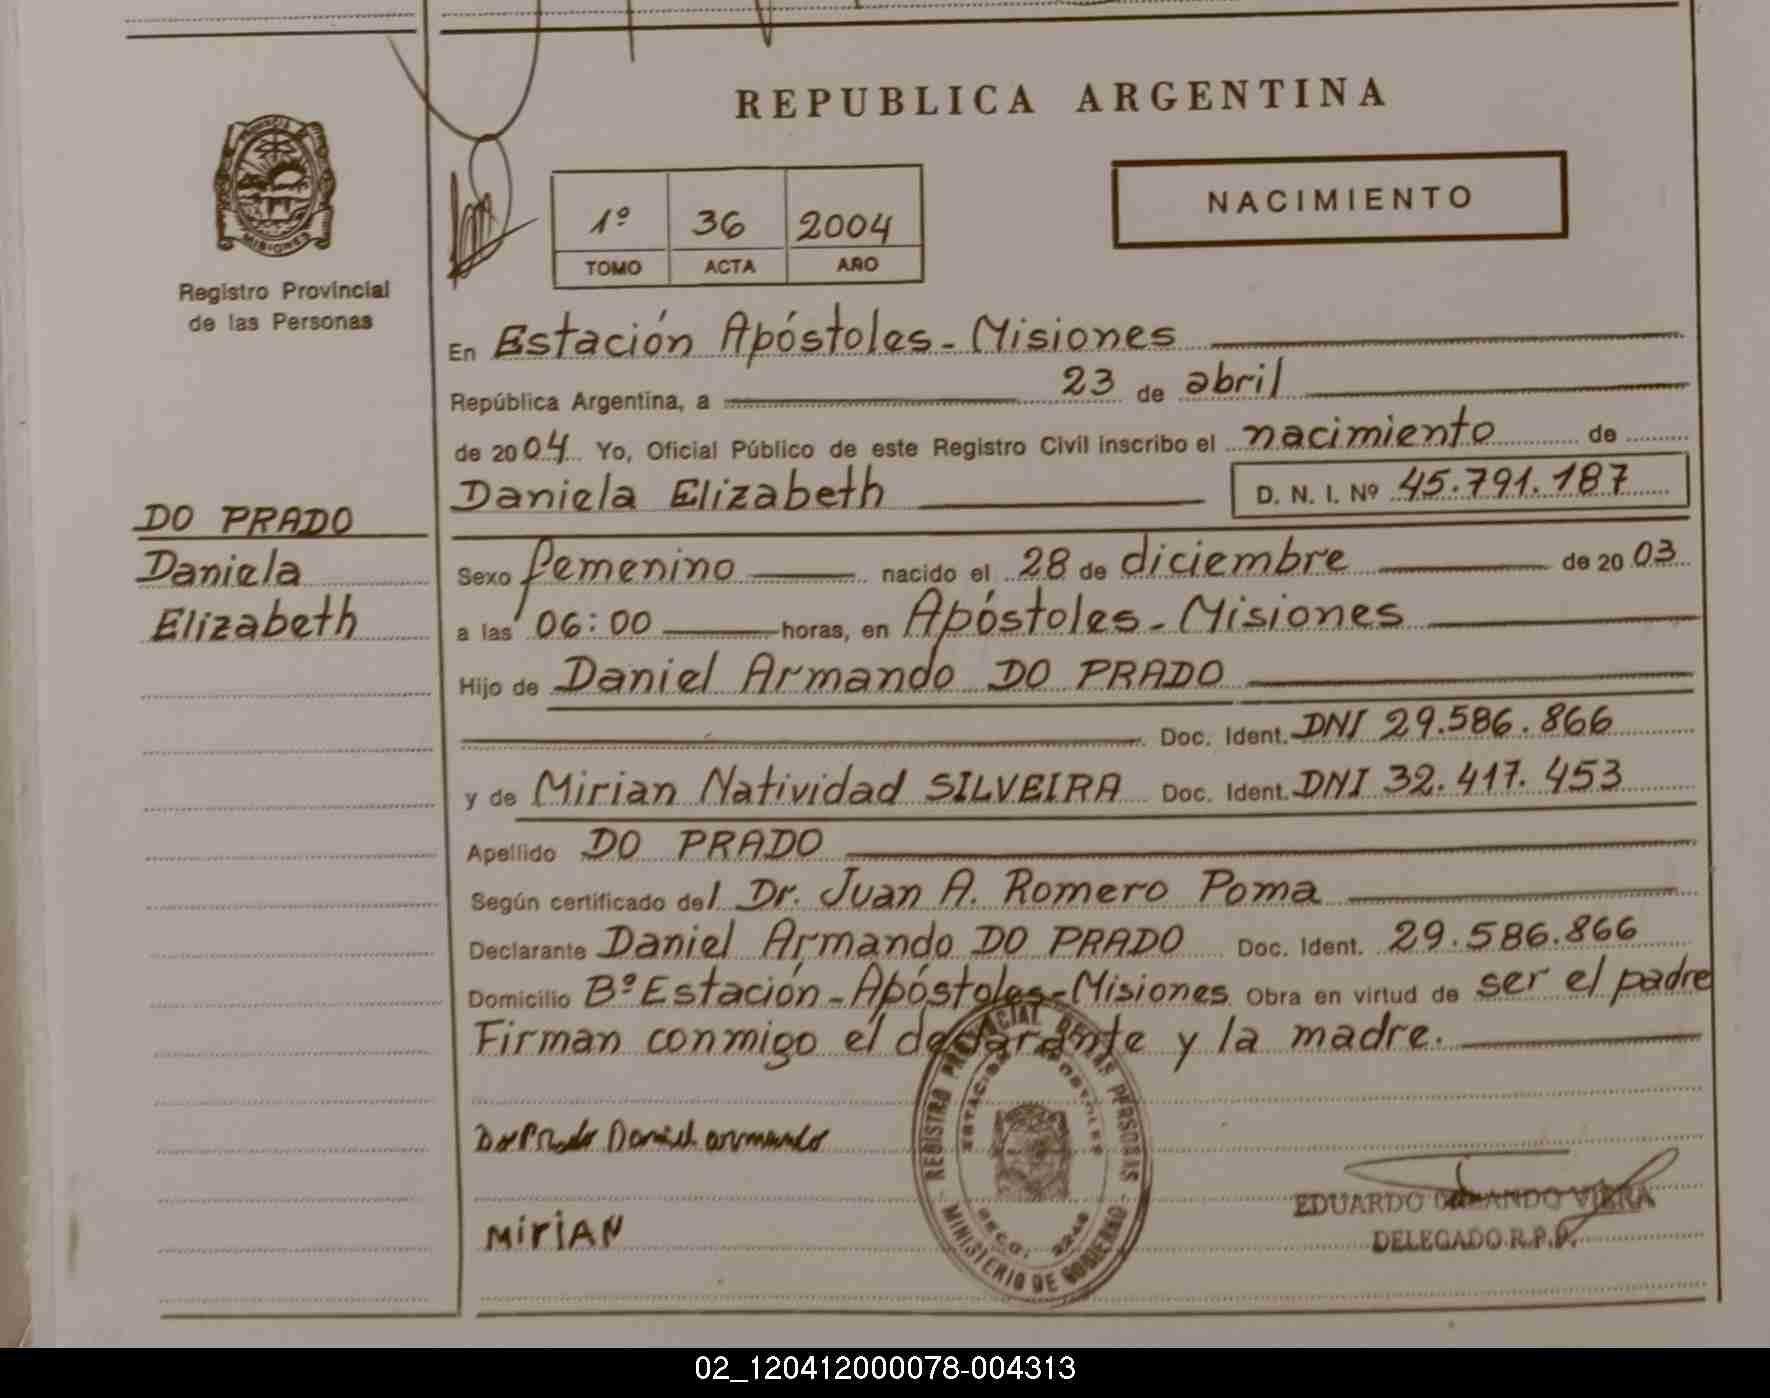 REPUBLICA ARGENTINA
PROVINCIA DE
MISIONES
Registro Provincial
de las Personas
NACIMIENTO
1º 36 2004
TOMO ACTA AÑO
En Estación Apóstoles - Misiones
República Argentina, a 23 de abril
de 2004 Yo, Oficial Público de este Registro Civil inscribo el nacimiento de
Daniela Elizabeth D. N. I. Nº 45.791.187
DO PRADO
Daniela
Elizabeth
Sexo femenino nacido el 28 de diciembre de 2003
a las 06:00 horas, en Apóstoles - Misiones
Hijo de Daniel Armando DO PRADO
Doc. Ident. DNI 29.586.866
y de Mirian Natividad SILVEIRA Doc. Ident. DNI 32.417.453
Apellido DO PRADO
Según certificado del Dr. Juan A. Romero Poma
Declarante Daniel Armando DO PRADO Doc. Ident. 29.586.866
Domicilio Bº Estación - Apóstoles - Misiones Obra en virtud de ser el padre
Firman conmigo el declarante y la madre.
Do Prado Daniel armando
MiriAN
REGISTRO PROVINCIAL DE LAS PERSONAS
ESTACION APOSTOLES
MINISTERIO DE GOBIERNO
EDUARDO ORLANDO VIERA
DELEGADO R.P.P.
02_120412000078-004313